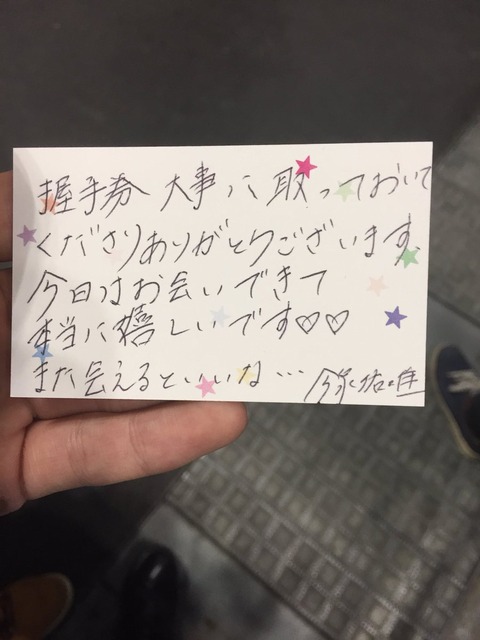 握手券 大事に取っておいて
くださりありがとうございます。
今日はお会いできて
本当に嬉しいです♡♡
また会えるといいな… 今泉佑唯